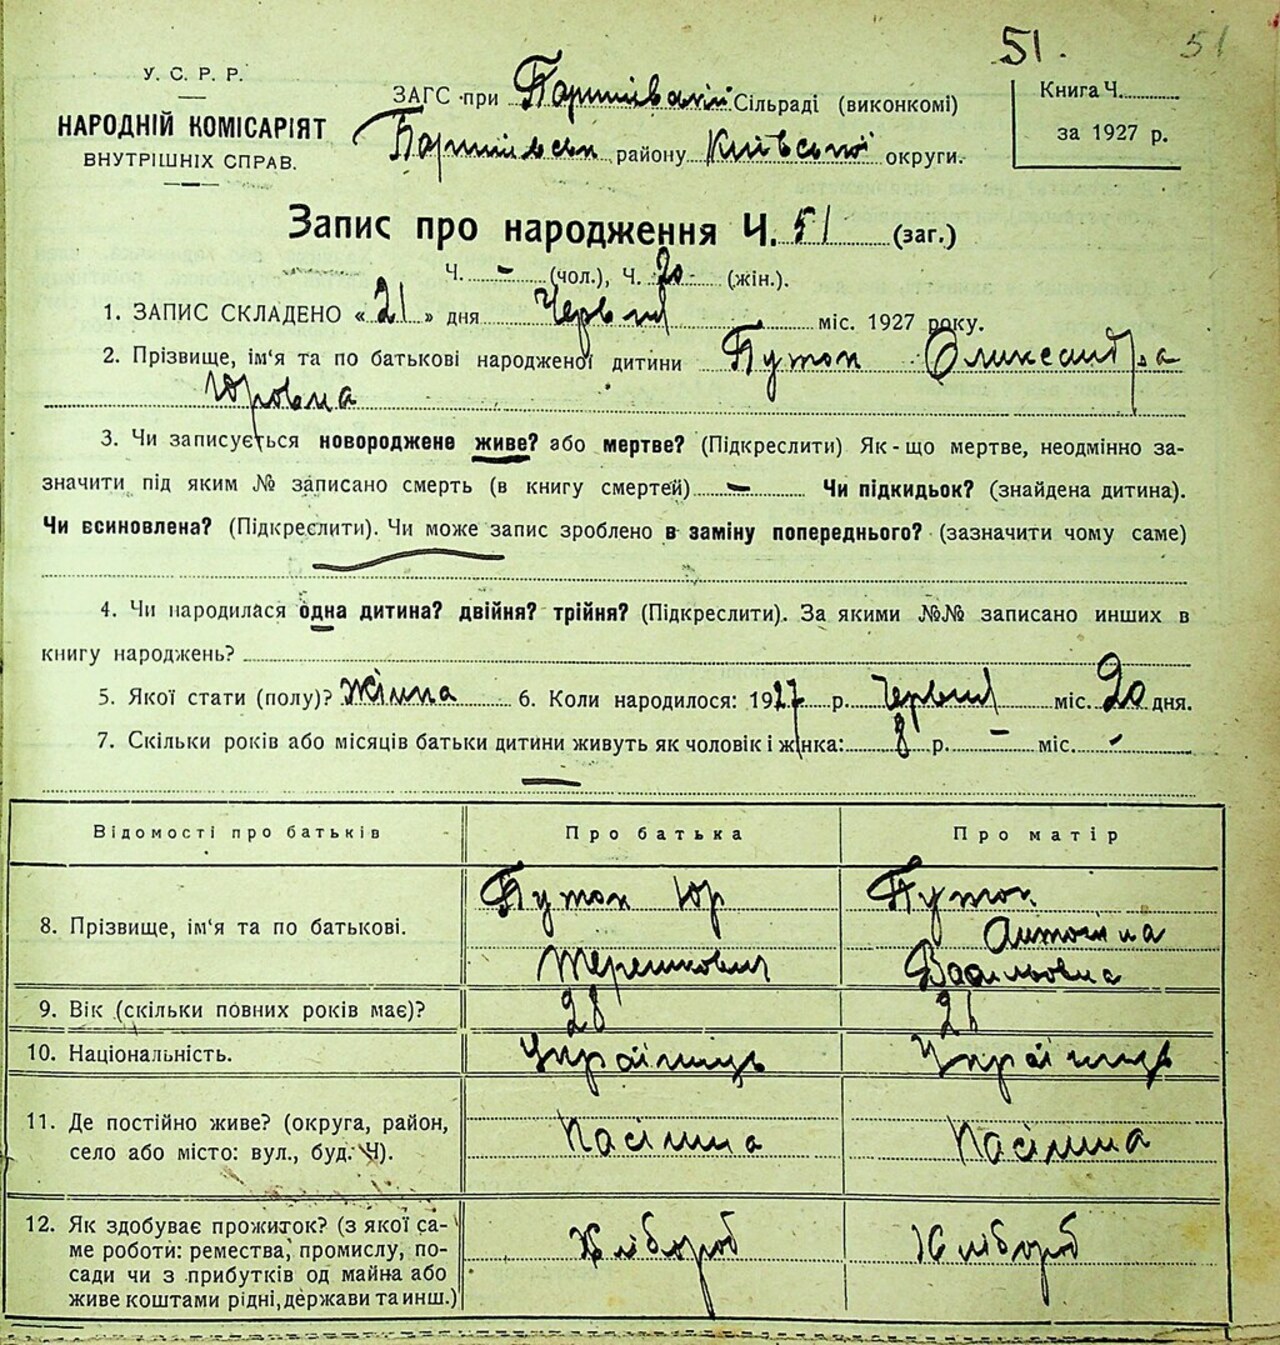 51. 51
У. С. Р. Р.
НАРОДНІЙ КОМІСАРІЯТ
ВНУТРІШНІХ СПРАВ.
ЗАГС при Сільраді (виконкомі)
району Київської округи.
Книга Ч.
за 1927 р.
Запис про народження Ч. 51 (заг.)
Ч. - (чол.), Ч. 20 (жін.).
1. ЗАПИС СКЛАДЕНО « 21 » дня Червня міс. 1927 року.
2. Прізвище, ім'я та по батькові народженої дитини Путок Олександра
Юровна
3. Чи записується новороджене живе? або мертве? (Підкреслити) Як-що мертве, неодмінно за-
значити під яким № записано смерть (в книгу смертей) — Чи підкидьок? (знайдена дитина).
Чи всиновлена? (Підкреслити). Чи може запис зроблено в заміну попереднього? (зазначити чому саме)
4. Чи народилася одна дитина? двійня? трійня? (Підкреслити). За якими №№ записано инших в
книгу народжень?
5. Якої стати (полу)? Жіноча 6. Коли народилося: 1927 р. Червня міс. 20 дня.
7. Скільки років або місяців батьки дитини живуть як чоловік і жінка: 8 р. - міс. -
Відомості про батьків Про батька Про матір
8. Прізвище, ім'я та по батькові. Путок Юр Терешкович Путок Антоніна Васильовна
9. Вік (скільки повних років має)? 28 26
10. Національність. Українець Українець
11. Де постійно живе? (округа, район,
село або місто: вул., буд. Ч).
12. Як здобуває прожиток? (з якої са- Хлібороб Хлібороб
ме роботи: ремества, промислу, по-
сади чи з прибутків од майна або
живе коштами рідні, держави та инш.)